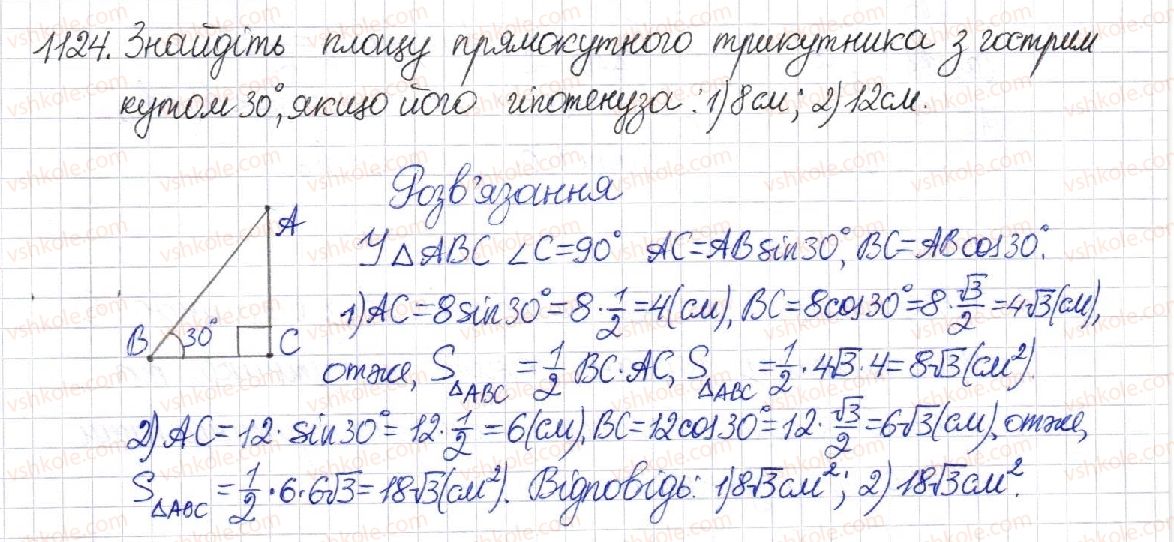 1124. Знайдіть площу прямокутного трикутника з гострим
кутом 30°, якщо його гіпотенуза: 1) 8 см; 2) 12 см.
Розв'язання
A
У △ABC ∠C=90° AC=AB sin30°, BC=AB cos30°.
1) AC=8 sin30°=8·1/2=4(см), BC=8cos30°=8·√3/2=4√3(см),
B 30° C
отже, S△ABC = 1/2 BC·AC, S△ABC = 1/2·4√3·4=8√3(см²).
2) AC=12·sin30°=12·1/2=6(см), BC=12cos30°=12·√3/2=6√3(см), отже,
S△ABC = 1/2·6·6√3=18√3(см²). Відповідь: 1) 8√3 см²; 2) 18√3 см².
vshkole.com